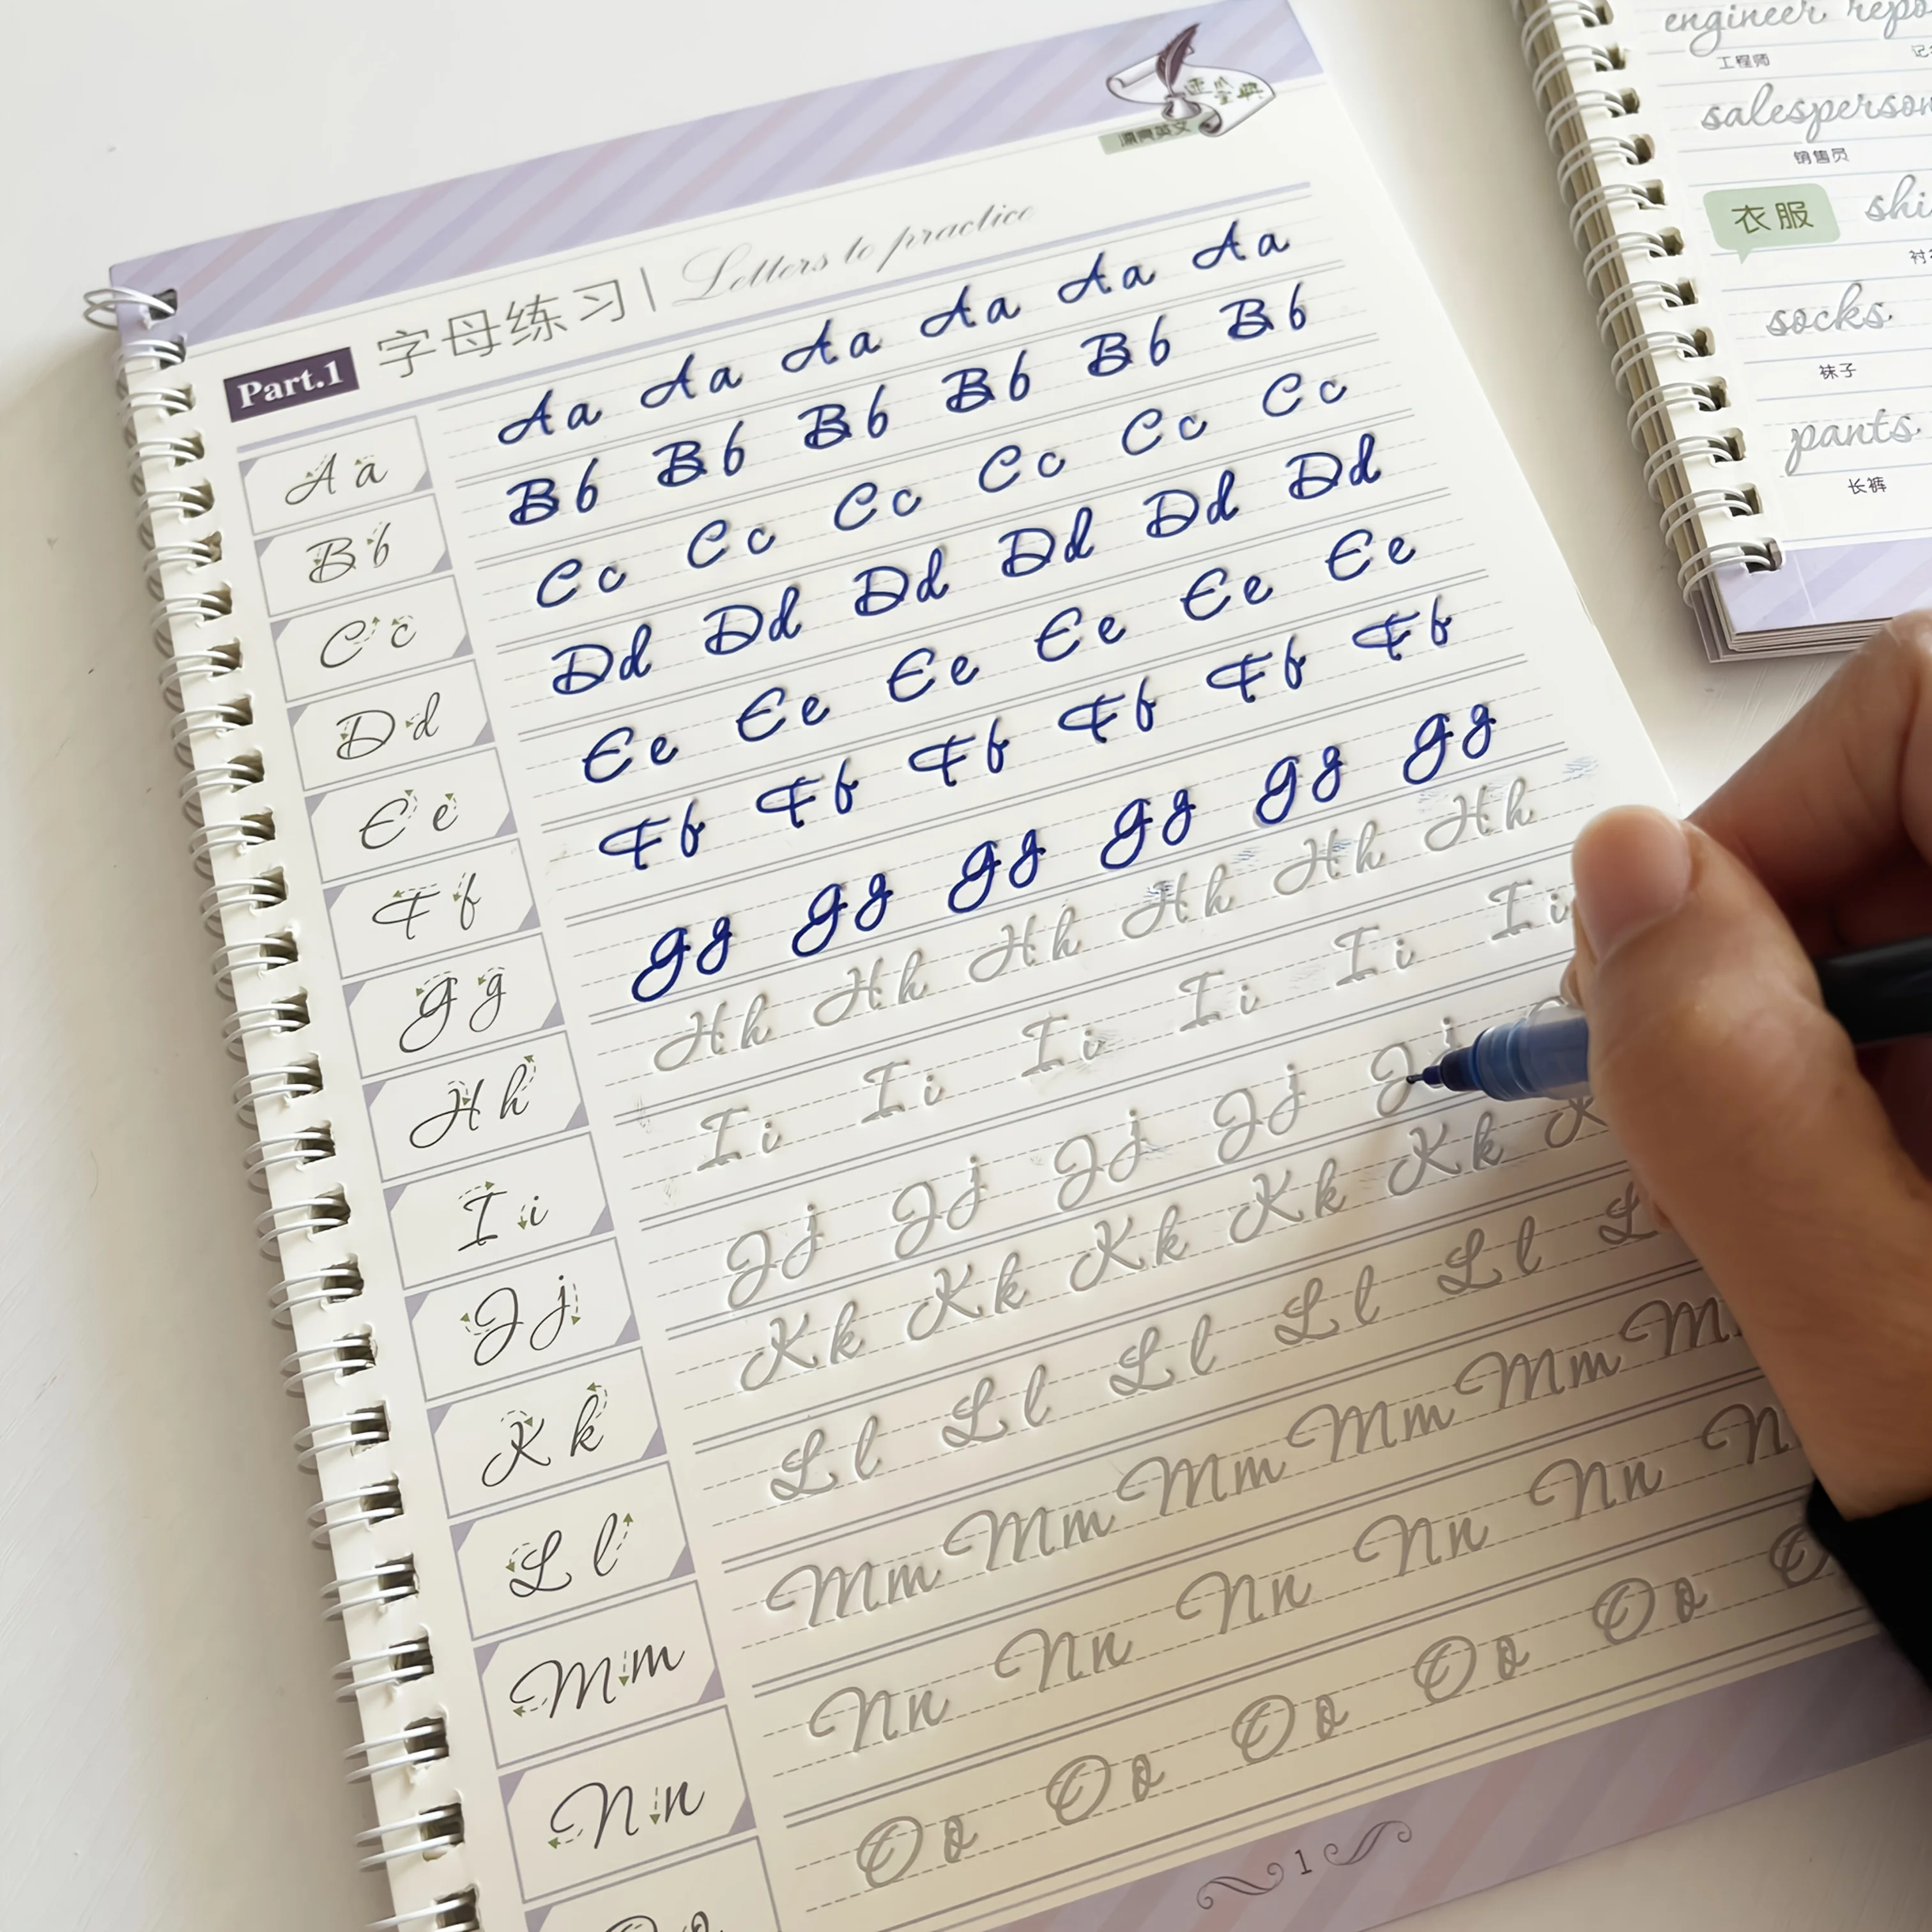 Part.1 字母练习 | Letters to practice
A a Aa Aa Aa Aa Aa Aa
B b Bb Bb Bb Bb Bb Bb
C c Cc Cc Cc Cc Cc Cc
D d Dd Dd Dd Dd Dd Dd
E e Ee Ee Ee Ee Ee Ee
F f Ff Ff Ff Ff Ff Ff
G g Gg Gg Gg Gg Gg Gg
H h Hh Hh Hh Hh Hh Hh
I i Ii Ii Ii Ii Ii Ii
J j Jj Jj Jj Jj Jj
K k Kk Kk Kk Kk Kk K
L l Ll Ll Ll Ll Ll L
M m Mm Mm Mm Mm Mm M
N n Nn Nn Nn Nn Nn N
Oo Oo Oo Oo Oo O
1
engineer
工程师 记
salesperson
销售员
衣服
socks
袜子
pants
长裤